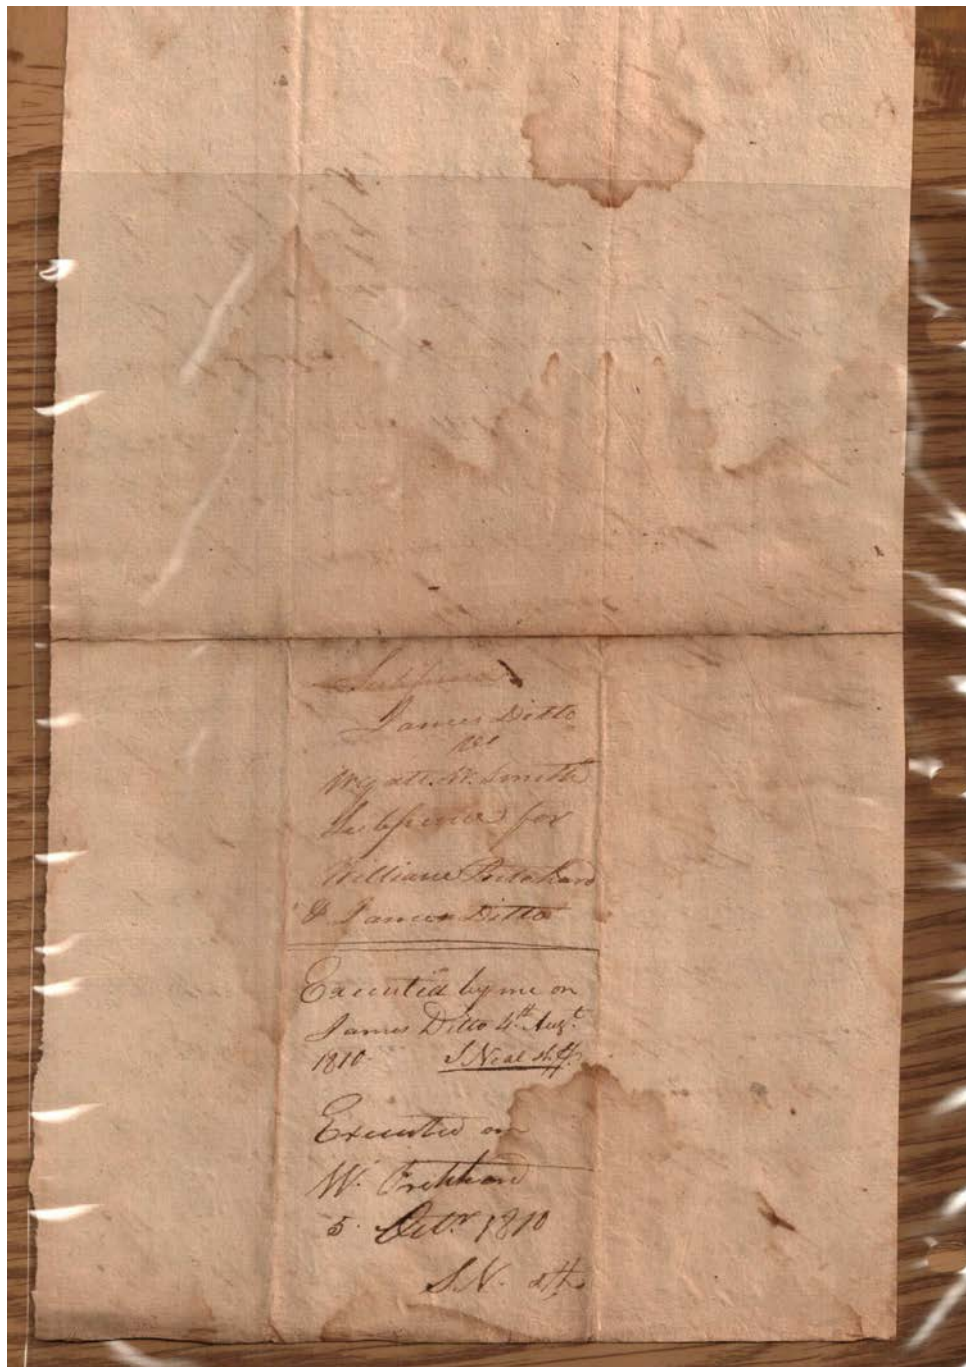 Subpoena
James Ditto
vs
Wyatt W. Smith
Subpoena for
William Pritchard
& James Ditto
Executed by me on
James Ditto 4th Augt.
1810 S. Neal shff.
Executed on
W. Pritchard
5. Octr 1810
S.N. shff